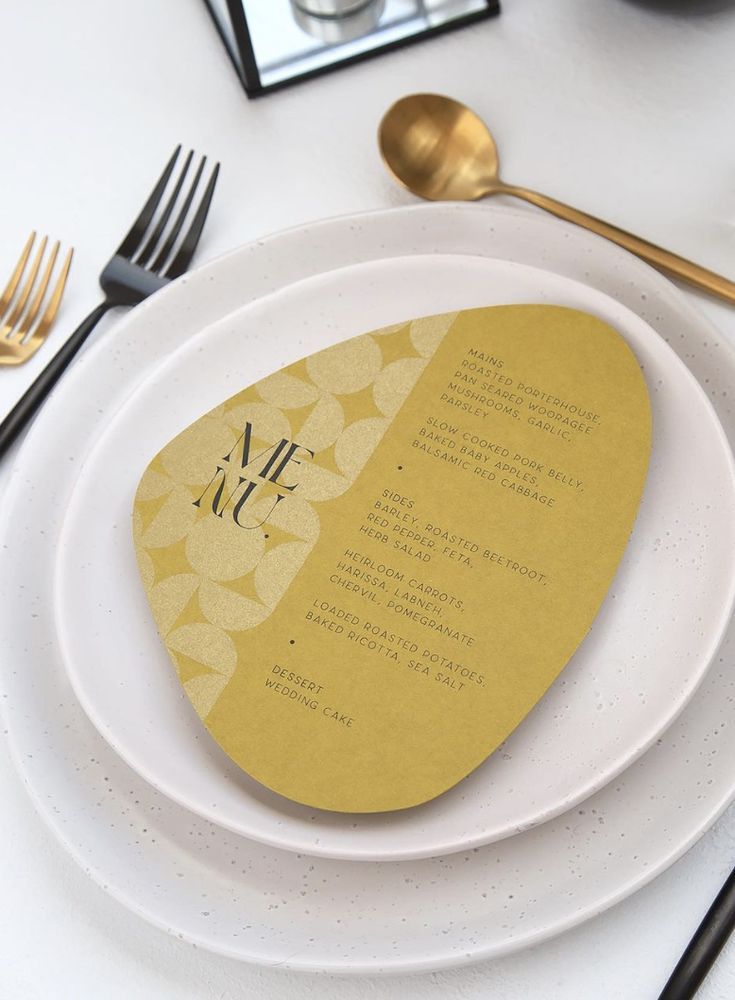 ME
NU.
MAINS
ROASTED PORTERHOUSE,
PAN SEARED WOORAGEE
MUSHROOMS, GARLIC,
PARSLEY
SLOW COOKED PORK BELLY,
BAKED BABY APPLES,
BALSAMIC RED CABBAGE
•
SIDES
BARLEY, ROASTED BEETROOT,
RED PEPPER, FETA,
HERB SALAD
HEIRLOOM CARROTS,
HARISSA, LABNEH,
CHERVIL, POMEGRANATE
LOADED ROASTED POTATOES,
BAKED RICOTTA, SEA SALT
•
DESSERT
WEDDING CAKE